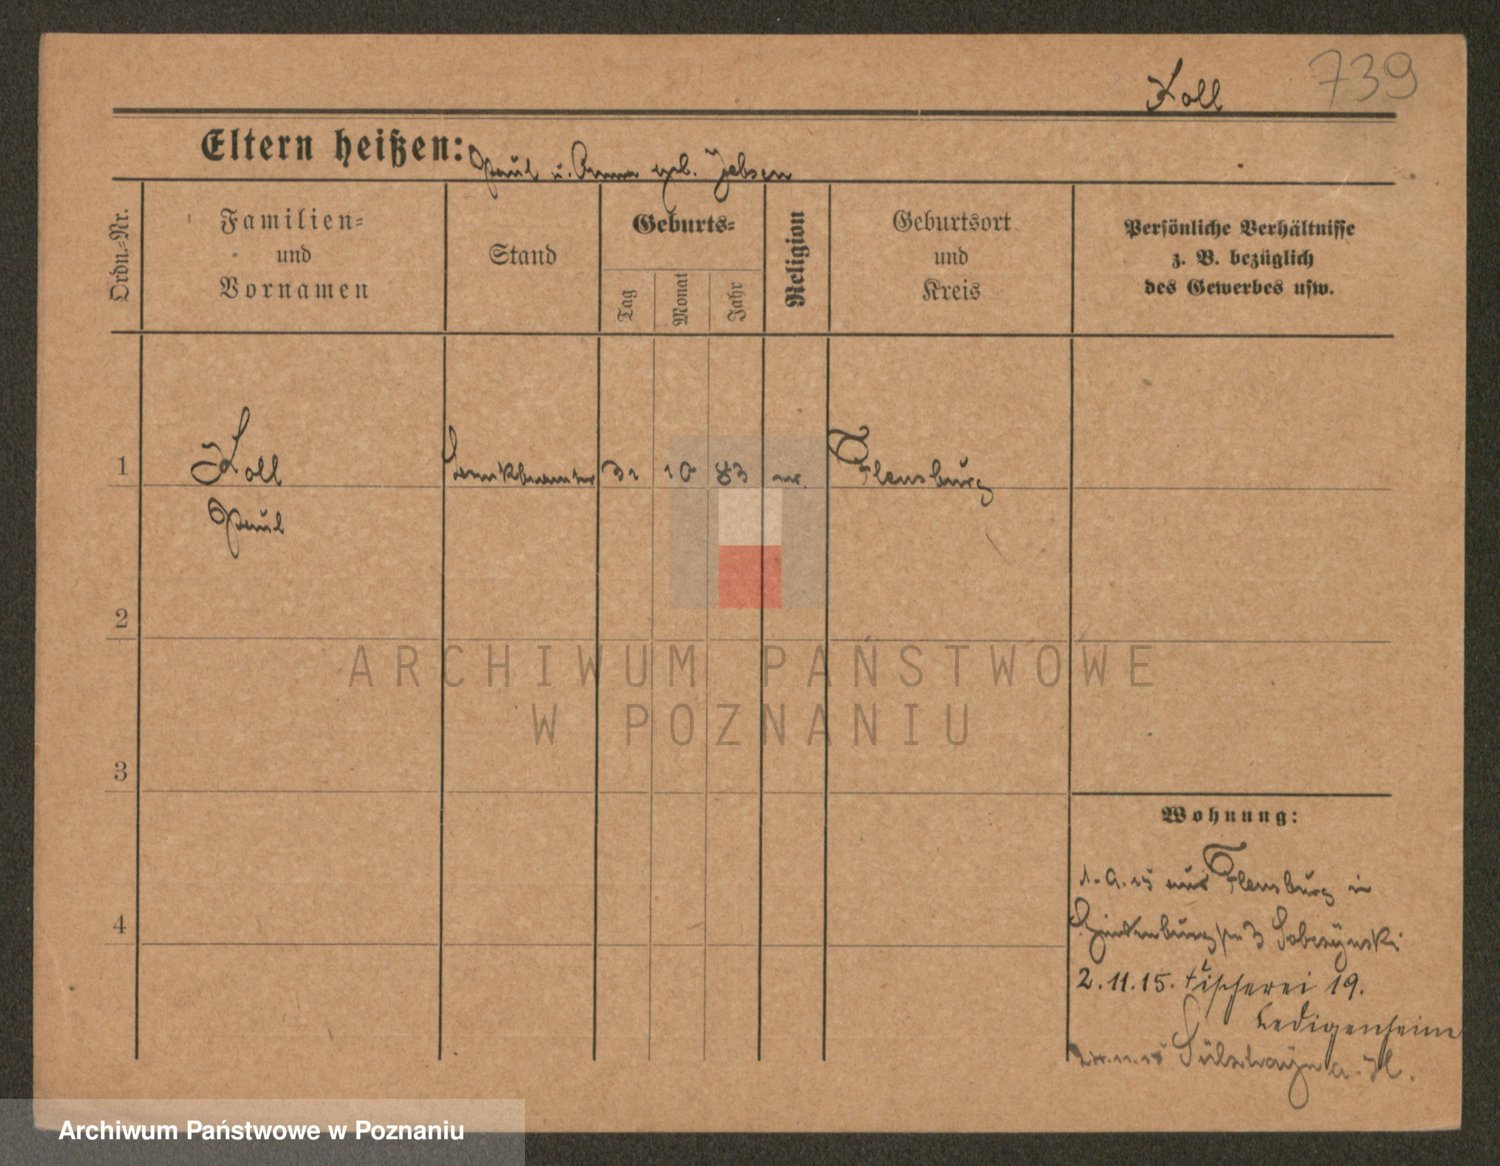 Koll 739
Eltern heißen: Paul u. Anna geb. Jebsen
Ordn.-Nr.
Familien-
und
Vornamen
Stand
Geburts-
Tag
Monat
Jahr
Religion
Geburtsort
und
Kreis
Persönliche Verhältnisse
z. B. bezüglich
des Gewerbes usw.
1 Koll 31 10 83 Flensburg
Paul
2
ARCHIWUM PAŃSTWOWE
W POZNANIU
3
Wohnung:
aus Flensburg in
4
2.11.15. Fischerei 19.
Ledigenheim
Archiwum Państwowe w Poznaniu